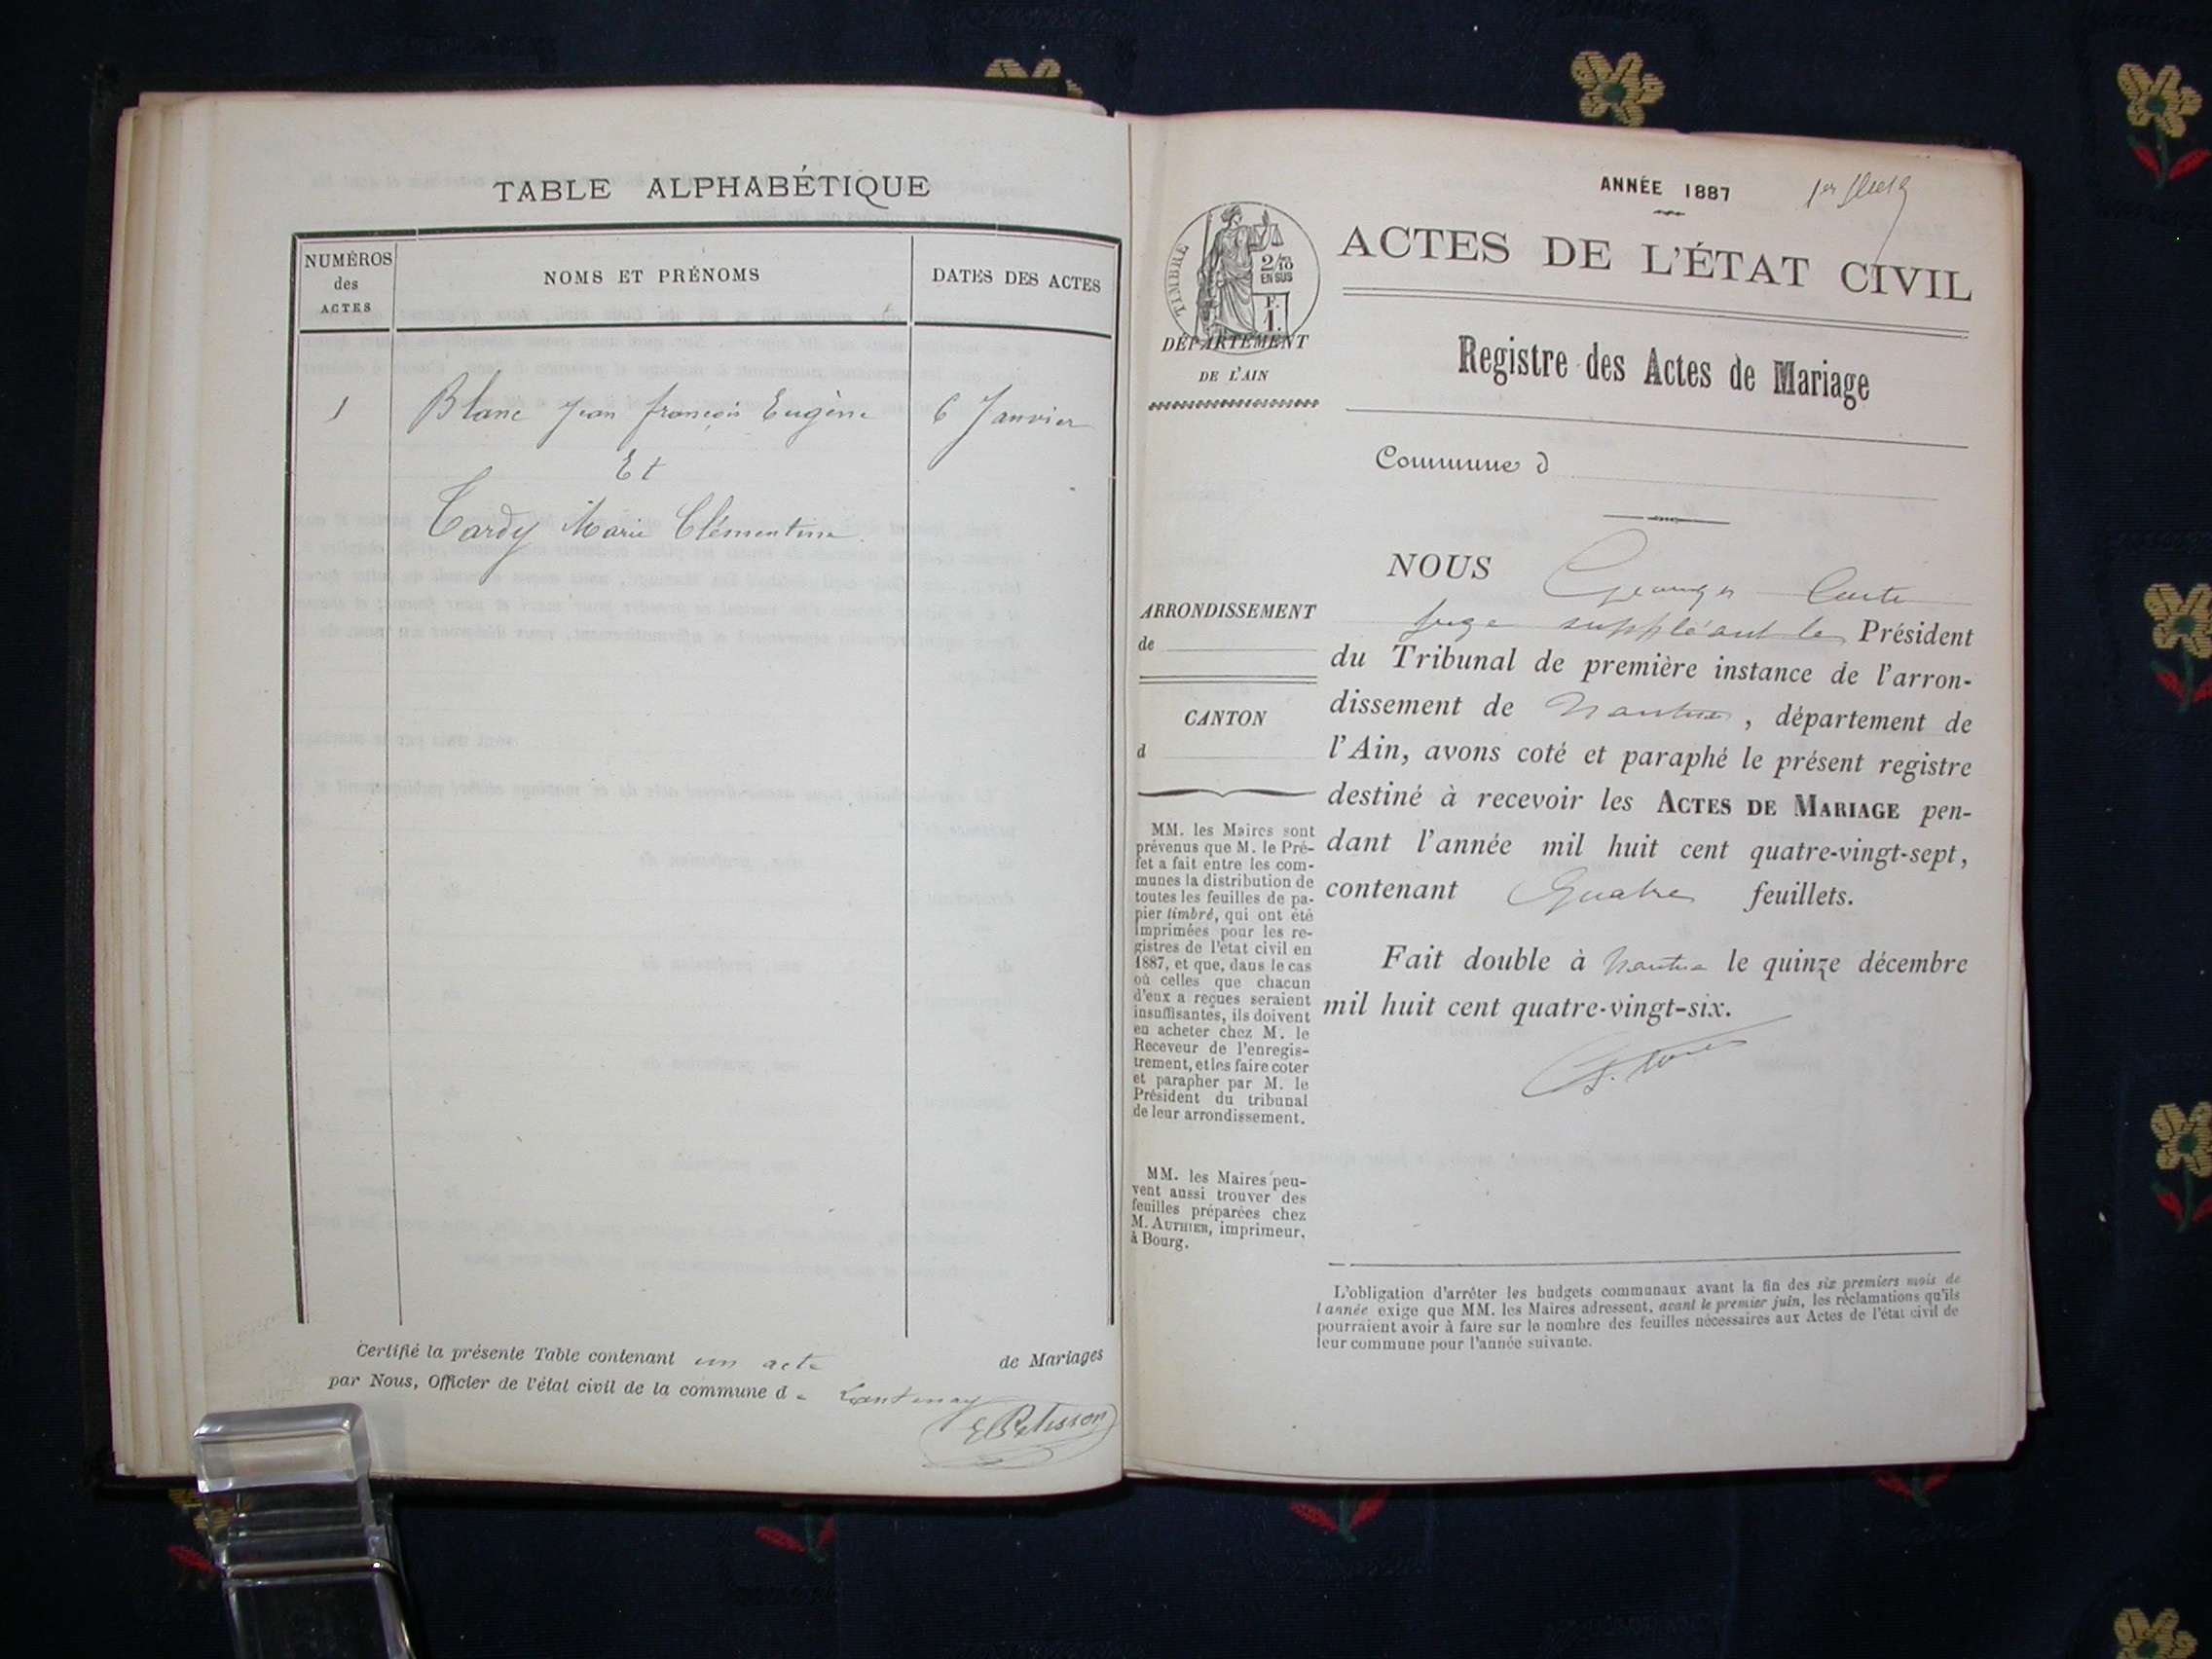 TABLE ALPHABÉTIQUE
NUMÉROS
des
ACTES
NOMS ET PRÉNOMS
DATES DES ACTES
1 Blanc Jean françois Eugène 6 Janvier
Et
Tardy Marie Clémentine
Certifié la présente Table contenant un acte de Mariages
par Nous, Officier de l'état civil de la commune de Lantenay
ANNÉE 1887 1er
TIMBRE
2/10
EN SUS
F.
1.
DÉPARTEMENT
DE L'AIN
ARRONDISSEMENT
de
CANTON
d
MM. les Maires sont
prévenus que M. le Pré-
fet a fait entre les com-
munes la distribution de
toutes les feuilles de pa-
pier timbré, qui ont été
imprimées pour les re-
gistres de l'état civil en
1887, et que, dans le cas
où celles que chacun
d'eux a reçues seraient
insuffisantes, ils doivent
en acheter chez M. le
Receveur de l'enregis-
trement, et les faire coter
et parapher par M. le
Président du tribunal
de leur arrondissement.
MM. les Maires peu-
vent aussi trouver des
feuilles préparées chez
M. AUTHIER, imprimeur,
à Bourg.
ACTES DE L'ÉTAT CIVIL
Registre des Actes de Mariage
Commune d
NOUS Georges
juge suppléant le Président
du Tribunal de première instance de l'arron-
dissement de Nantua, département de
l'Ain, avons coté et paraphé le présent registre
destiné à recevoir les ACTES DE MARIAGE pen-
dant l'année mil huit cent quatre-vingt-sept,
contenant Quatre feuillets.
Fait double à Nantua le quinze décembre
mil huit cent quatre-vingt-six.
L'obligation d'arrêter les budgets communaux avant la fin des six premiers mois de
l'année exige que MM. les Maires adressent, avant le premier juin, les réclamations qu'ils
pourraient avoir à faire sur le nombre des feuilles nécessaires aux Actes de l'état civil de
leur commune pour l'année suivante.